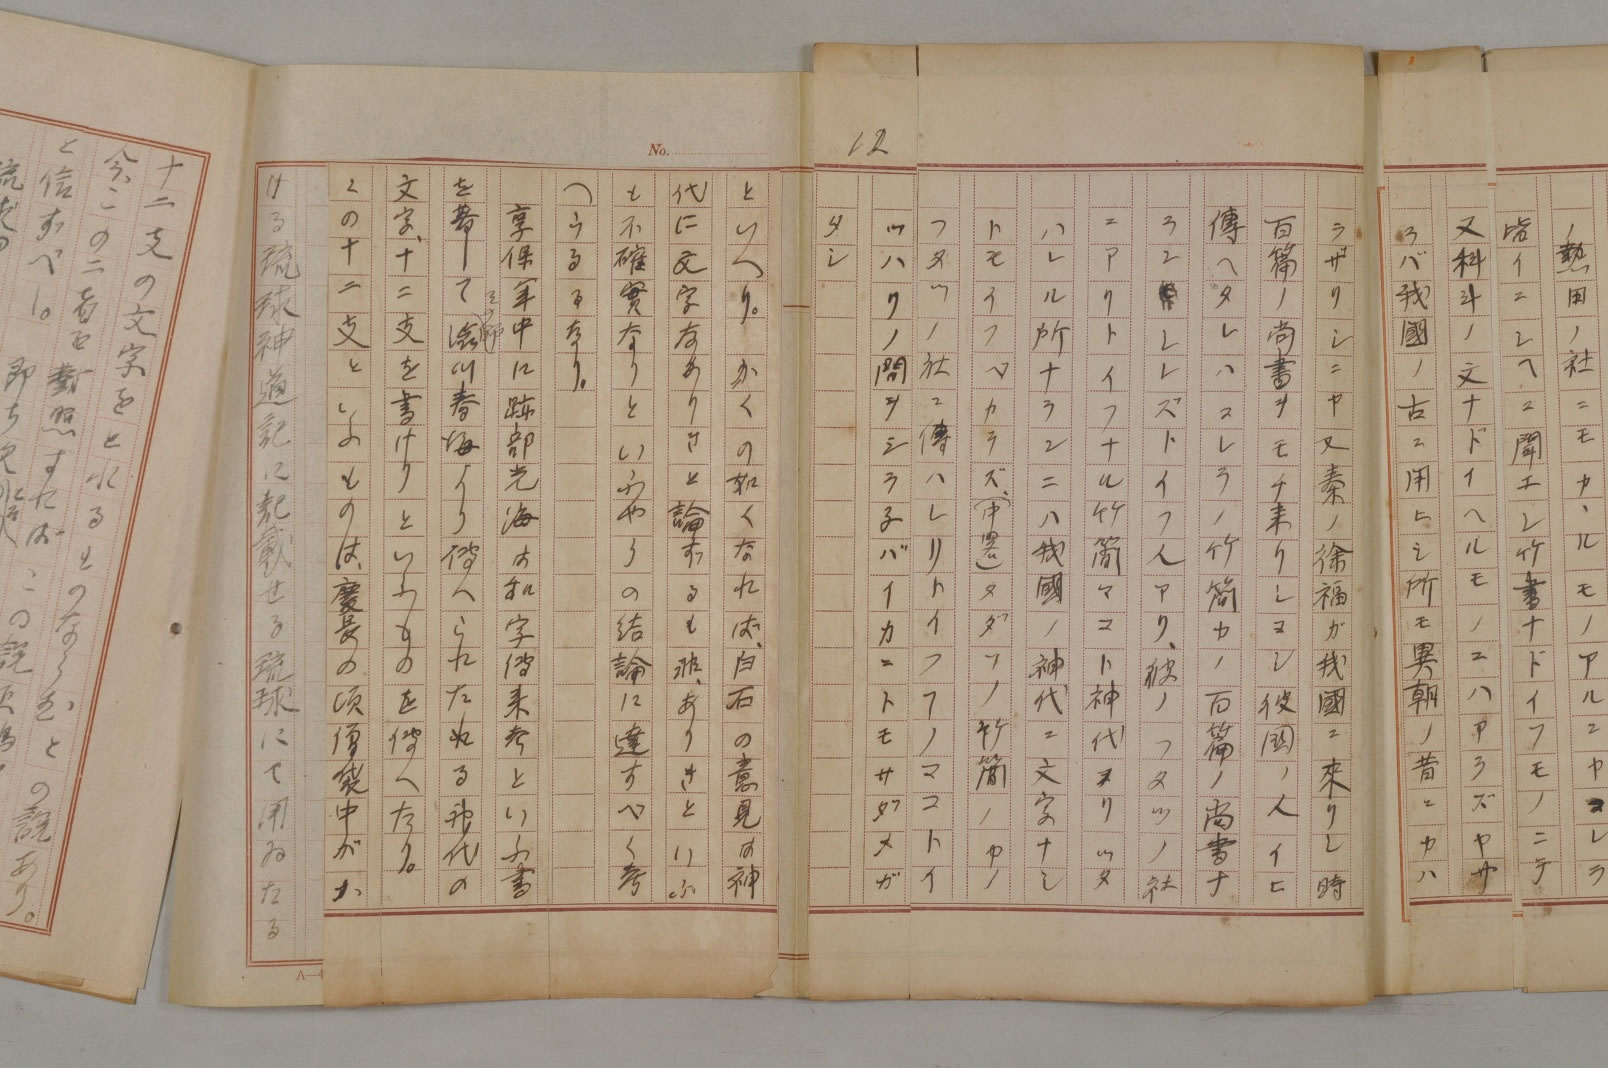 ノ熱田ノ社ニモカヽルモノアルニヤコレラ
皆イニシヘニ聞エシ竹書ナドイフモノニテ
又科斗ノ文ナドイヘルモノニハアラズヤサ
ラバ我國ノ古ニ用ヒシ所モ異朝ノ昔ニカハ
ラザリシニヤ又秦ノ徐福ガ我國ニ來リシ時
百篇ノ尚書ヲモチ来リシヨシ彼国ノ人イヒ
傳ヘタレハコレラノ竹簡カノ百篇ノ尚書ナ
ランモシレズトイフ人アリ、彼ノフタツノ社
ニアリトイフナル竹簡マコト神代ヨリツタ
ハレル所ナランニハ我國ノ神代ニ文字ナシ
トモイフベカラズ、(中畧)タダソノ竹簡ノカノ
フタツノ社ニ傳ハレリトイフフノマコトイ
ツハリノ間ヲシラ子バイカニトモサダメガ
タシ
12
No.
といへり。かくの如くなれば、白石の意見は神
代に文字なありきと論ずるも非、ありきといふ
も不確實なりといふやうの結論に達すべく考
へらるるなり。
享保年中に跡部光海は和字傳来考といふ書
を著して澁川春海より傳へられたれる神代の
文字、十二支を書けりといふものを傳へたり。
この十二支といふものは、慶長の頃僧袋中がか
ける琉球神道記に記載せる琉球にて用ゐたる
十二支の文字をとれるものならむとの説あり。
今この二者を對照すれば
と信ずべし。即ち この説